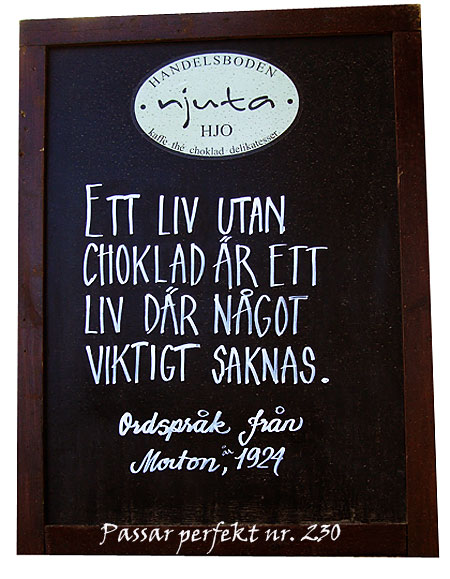 HANDELSBODEN
· njuta ·
HJO
kaffe · thé · choklad · delikatesser
ETT LIV UTAN
CHOKLAD ÄR ETT
LIV DÄR NÅGOT
VIKTIGT SAKNAS.
Ordspråk från
Morton, år 1924
Passar perfekt nr. 230